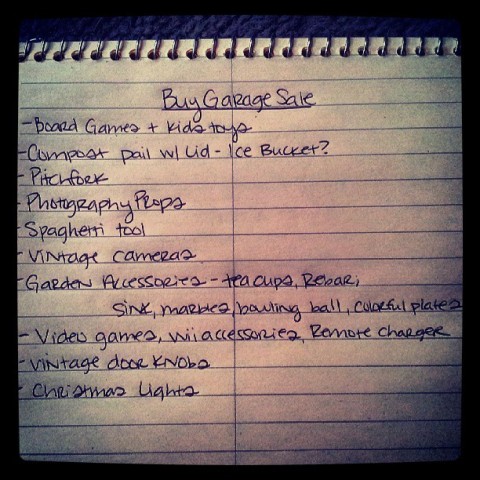 Buy Garage Sale
- Board Games + kids toys
- Compost pail w/ Lid - Ice Bucket?
- Pitchfork
- Photography Props
- Spaghetti tool
- Vintage cameras
- Garden Accessories - teacups, Rebar,
sink, marbles, bowling ball, colorful plates
- Video games, wii accessories, Remote charger
- Vintage door knobs
- Christmas Lights